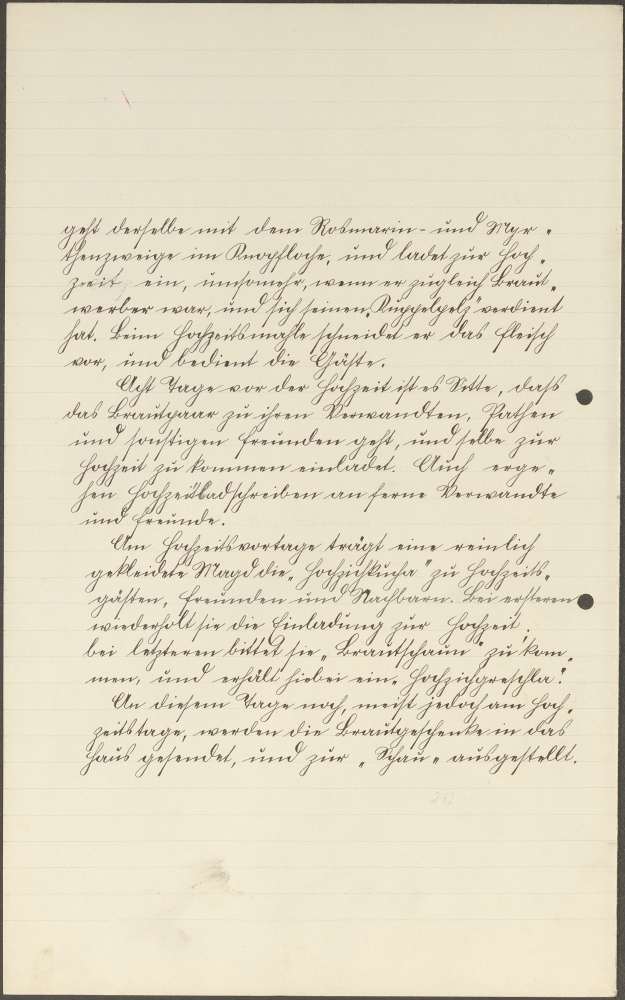 geht derselbe mit dem Rosmarin- und Myr-
thenzweige im Knopfloche, und ladet zur Hoch-
zeit ein, umsomehr, wenn er zugleich Braut-
werber war, und sich seinen „Kuppelpelz" verdient
hat. Beim Hochzeitsmahle schneidet er das Fleisch
vor, und bedient die Gäste.
Acht Tage vor der Hochzeit ist es Sitte, dass
das Brautpaar zu ihren Verwandten, Pathen
und sonstigen Freunden geht, und selbe zur
Hochzeit zu kommen einladet. Auch erge-
hen Hochzeitladschreiben an ferne Verwandte
und Freunde.
Am Hochzeitsvortage trägt eine reinlich
gekleidete Magd die „Hochzichkucha" zu Hochzeits-
gästen, Freunden und Nachbarn. Bei ersteren
wiederholt sie die Einladung zur Hochzeit,
bei letzteren bittet sie „Brautschaun" zu kom-
men, und erhält hiebei ein „Hochzichgreschla".
An diesem Tage noch, meist jedoch am Hoch-
zeitstage, werden die Brautgeschenke in das
Haus gesendet, und zur „Schau" ausgestellt.